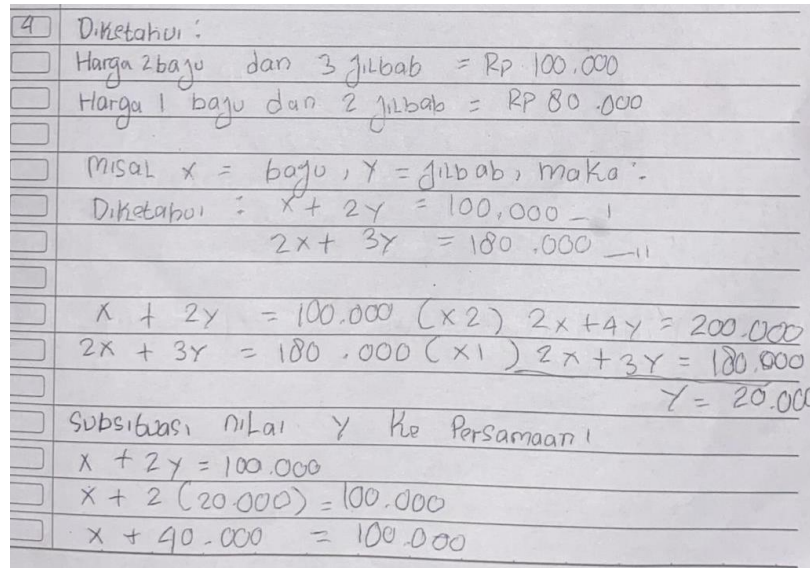 4 Diketahui :
Harga 2 baju dan 3 jilbab = Rp 100.000
Harga 1 baju dan 2 jilbab = RP 80.000
misal x = baju, Y = jilbab, maka :-
Diketahui : x + 2Y = 100,000 _ I
2x + 3Y = 180.000 _ II
x + 2Y = 100.000 (x2) 2x + 4Y = 200.000
2x + 3Y = 180.000 (x1) 2x + 3Y = 180.000
Y = 20.000
Subsituasi nilai Y ke Persamaan I
x + 2Y = 100.000
x + 2 (20.000) = 100.000
x + 40.000 = 100.000